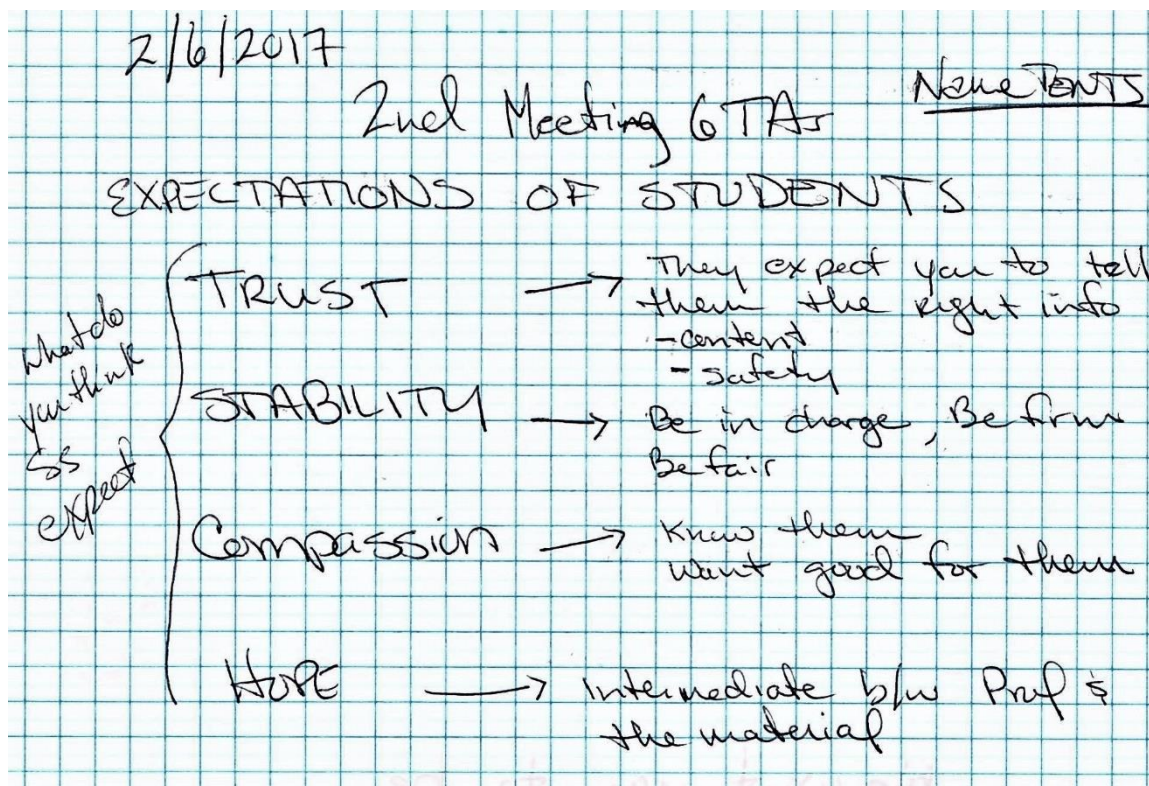 2/6/2017
Name TENTS
2nd Meeting GTAs
EXPECTATIONS OF STUDENTS
what do
you think
SS
expect
TRUST → They expect you to tell
them the right info
- content
- safety
STABILITY → Be in charge, Be firm
Be fair
Compassion → Know them
want good for them
HOPE → intermediate b/w Prof &
the material